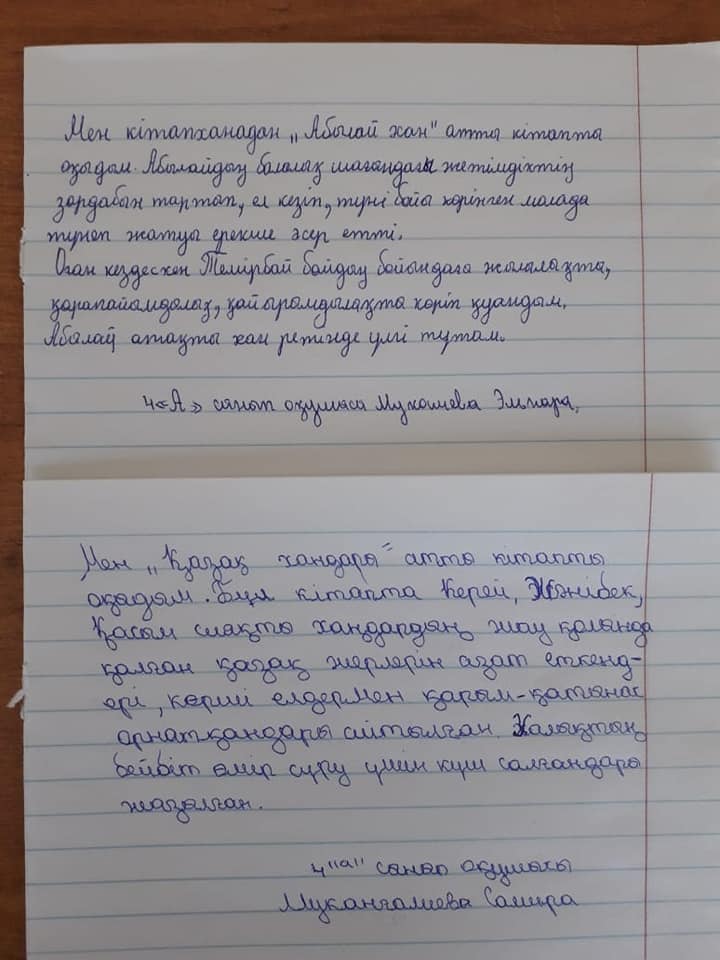 Мен кітапханадан „Абылай хан" атты кітапты
оқыдым. Абылайдың балалық шағындағы жетімдіктің
зардабын тартып, ел кезіп, түні бойы көрінген молада
түнеп жатуы ерекше әсер етті.
Оған кездескен Темірбай байдың бойындағы жылылықты,
қарапайымдылық, қайырымдылықты көріп қуандым.
Абылай атақты хан ретінде үлгі тұтам.
4«А» сынып оқушысы Мукошева Эльнара.
Мен „Қазақ хандары" атты кітапты
оқыдым. Бұл кітапта Керей, Жәнібек,
Қасым сияқты хандардың жау қолында
қалған қазақ жерлерін азат еткенд-
ері, көрші елдермен қарым-қатынас
орнатқандары айтылған. Халықтың
бейбіт өмір сүру үшін күш салғандары
жазылған.
4"а" сынып оқушысы
Мукангалиева Самира